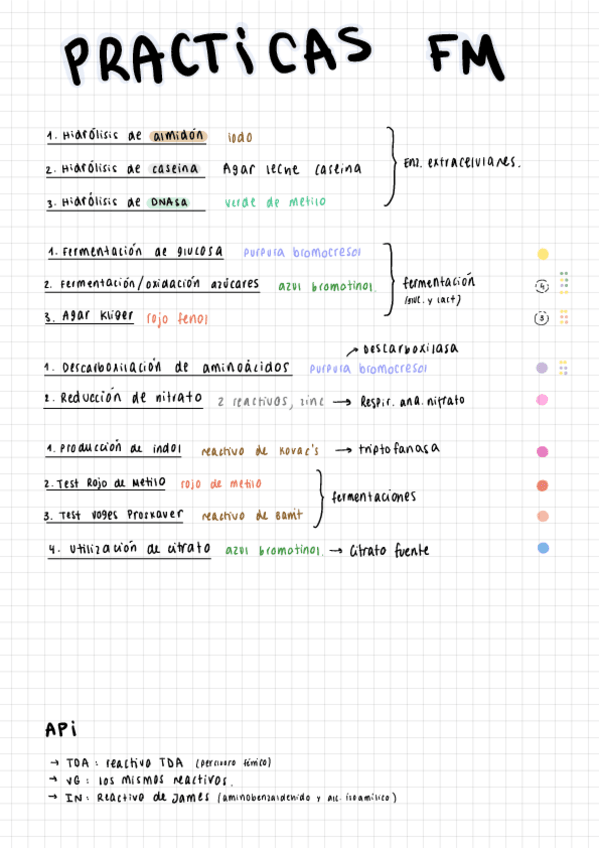 PRACTiCAS FM
1. Hidrólisis de almidón iodo
2. Hidrólisis de caseina Agar leche caseina
Enz. extracelulares.
3. Hidrólisis de DNAsa verde de metilo
1. Fermentación de glucosa purpura bromocresol
2. Fermentación/oxidación azúcares azul bromotimol.
fermentación
(gluc. y lact)
4
3. Agar Kliger rojo fenol
3
Descarboxilasa
1. Descarboxilación de aminoácidos purpura bromocresol
2. Reducción de nitrato 2 reactivos, zinc → Respir. ana. nitrato
1. Producción de indol reactivo de Kovac's → triptofanasa
2. Test Rojo de Metilo rojo de metilo
fermentaciones
3. Test Voges Proskauer reactivo de Barrit
4. Utilización de citrato azul bromotimol. → Citrato fuente
APi
→ TDA: reactivo TDA (percloruro férrico)
→ VG: los mismos reactivos.
→ IN: Reactivo de James (aminobenzaldehido y alc. isoamílico)